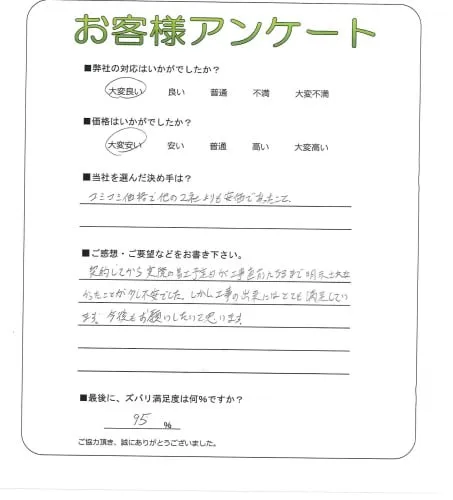 お客様アンケート
■弊社の対応はいかがでしたか？
大変良い 良い 普通 不満 大変不満
■価格はいかがでしたか？
大変安い 安い 普通 高い 大変高い
■当社を選んだ決め手は？
コミコミ価格で他の2社よりも安価であったこと。
■ご感想・ご要望などをお書き下さい。
契約してから実際の着工予定日が工事直前になるまで明示
かったことが少し不安でした。しかし工事の出来にはとても満足してい
ます。今後もお願いしたいと思います。
■最後に、ズバリ満足度は何％ですか？
95 ％
ご協力頂き、誠にありがとうございました。